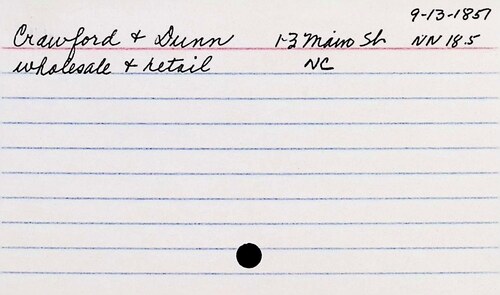 9-13-1851
Crawford & Dunn 1-3 Main St NN 18.5
wholesale & retail NC